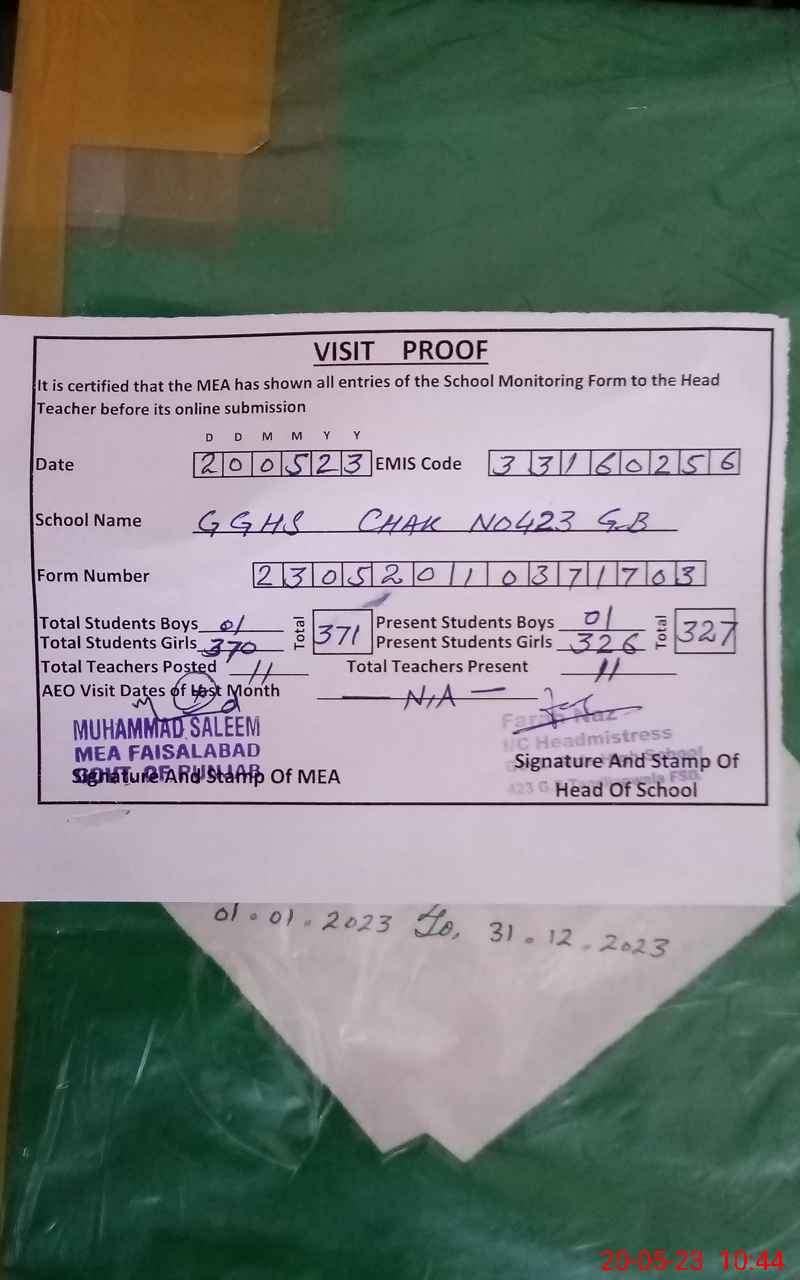 VISIT PROOF
It is certified that the MEA has shown all entries of the School Monitoring Form to the Head
Teacher before its online submission
D D M M Y Y
Date 200523 EMIS Code 33160256
School Name GGHS CHAK NO 423 GB
Form Number 230520110371703
Total Students Boys 01 Total 371 Present Students Boys 01 Total 327
Total Students Girls 370 Present Students Girls 326
Total Teachers Posted 11 Total Teachers Present 11
AEO Visit Dates of last Month N/A
MUHAMMAD SALEEM
MEA FAISALABAD
GOVT. OF PUNJAB
Signature And Stamp Of MEA
Farah Naz
I/C Headmistress
High School
423 G.B FSD.
Signature And Stamp Of
Head Of School
01.01.2023 To, 31.12.2023
20-05-23 10:44